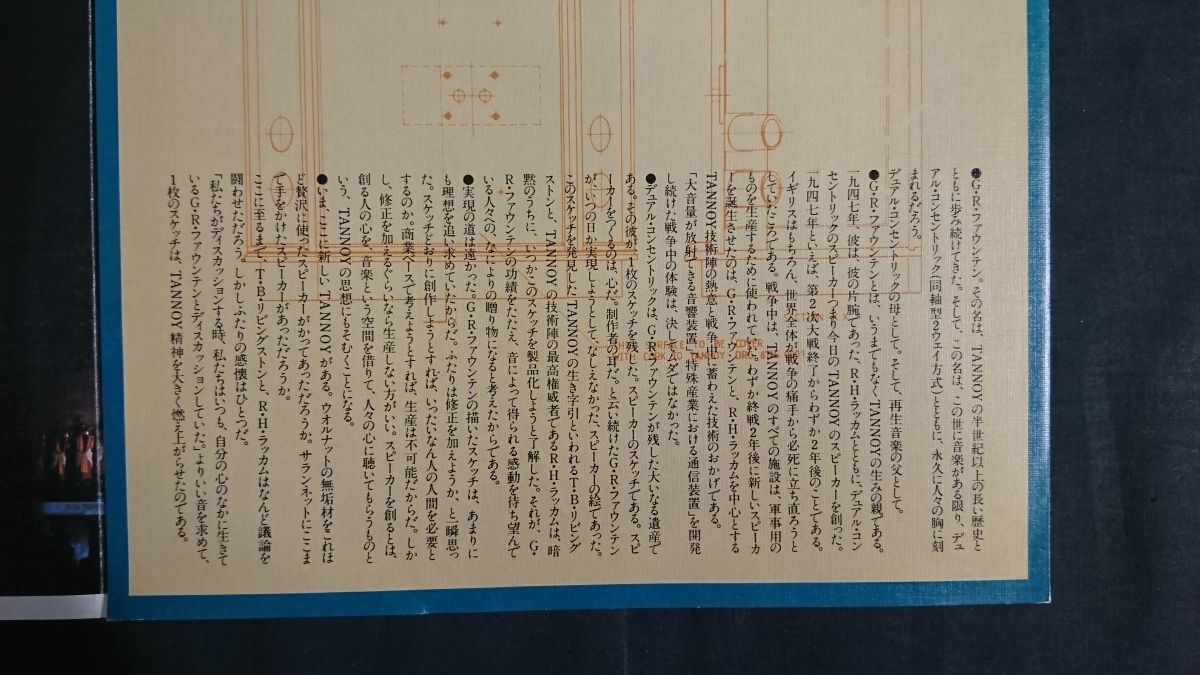 ●G・R・ファウンテン。その名は、TANNOYの半世紀以上の長い歴史と
ともに歩み続けてきた。そして、この名は、この世に音楽がある限り、デュ
アル・コンセントリック(同軸型2ウェイ方式)とともに、永久に人々の胸に刻
まれるだろう。
デュアル・コンセントリックの母として。そして、再生音楽の父として。
●G・R・ファウンテンとは、いうまでもなくTANNOYの生みの親である。
一九四七年、彼は、彼の片腕であった、R・H・ラッカムとともに、デュアル・コン
セントリックのスピーカーつまり今日のTANNOYのスピーカーを創った。
一九四七年といえば、第2次大戦終了からわずか2年後のことである。
イギリスはもちろん、世界全体が戦争の痛手から必死に立ち直ろうと
していたころである。戦争中は、TANNOYのすべての施設は、軍事用の
ものを生産するために使われていた。わずか終戦2年後に新しいスピーカ
ーを誕生させたのは、G・R・ファウンテンと、R・H・ラッカムを中心とする
TANNOY技術陣の熱意と戦争中に蓄わえた技術のおかげである。
「大音量が放射できる音響装置」「特殊産業における通信装置」を開発
し続けた戦争中の体験は、決してムダではなかった。
●デュアル・コンセントリックは、G・R・ファウンテンが残した大いなる遺産で
ある。その彼が1枚のスケッチを残した。スピーカーのスケッチである。スピ
ーカーをつくるのは、心だ。制作者の耳だ。と云い続けたG・R・ファウンテン
が、いつの日か実現しようとして、なしえなかった、スピーカーの絵であった。
このスケッチを発見したTANNOYの生き字引といわれるT・B・リビング
ストンと、TANNOYの技術陣の最高権威者であるR・H・ラッカムは、暗
黙のうちに、いつかこのスケッチを製品化しようと了解した。それが、G・
R・ファウンテンの功績をたたえ、音によって得られる感動を待ち望んで
いる人々への、なによりの贈り物になると考えたからである。
●実現の道は遠かった。G・R・ファウンテンの描いたスケッチは、あまりに
も理想を追い求めていたからだ。ふたりは修正を加えようか、と一瞬思っ
た。スケッチどおりに創作しようとすれば、いったいなん人の人間を必要と
するのか。商業ベースで考えようとすれば、生産は不可能だからだ。しか
し、修正を加えるぐらいなら生産しない方がいい。スピーカーを創るとは、
創る人の心を、音楽という空間を借りて、人々の心に聴いてもらうものと
いう、TANNOYの思想にもそむくことになる。
●いま、ここに新しいTANNOYがある。ウオルナットの無垢材をこれほ
ど贅沢に使ったスピーカーがかってあっただろうか。サランネットにここま
で手をかけたスピーカーがあっただろうか。
ここに至るまで、T・B・リビングストンと、R・H・ラッカムはなんど議論を
闘わせただろう。しかしふたりの感懐はひとつだ。
「私たちがディスカッションする時、私たちはいつも、自分の心のなかに生きて
いるG・R・ファウンテンとディスカッションしていた。」よりいい音を求めて、
1枚のスケッチは、TANNOY精神を大きく燃え上がらせたのである。